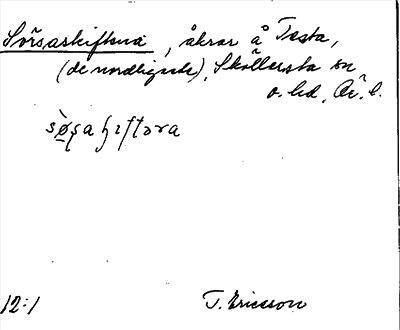 Sörsaskiftena, åkrar å Tasta,
(de nordligaste), Sköllersta sn
o. hd, Ör. l.
12:1 T. Ericsson